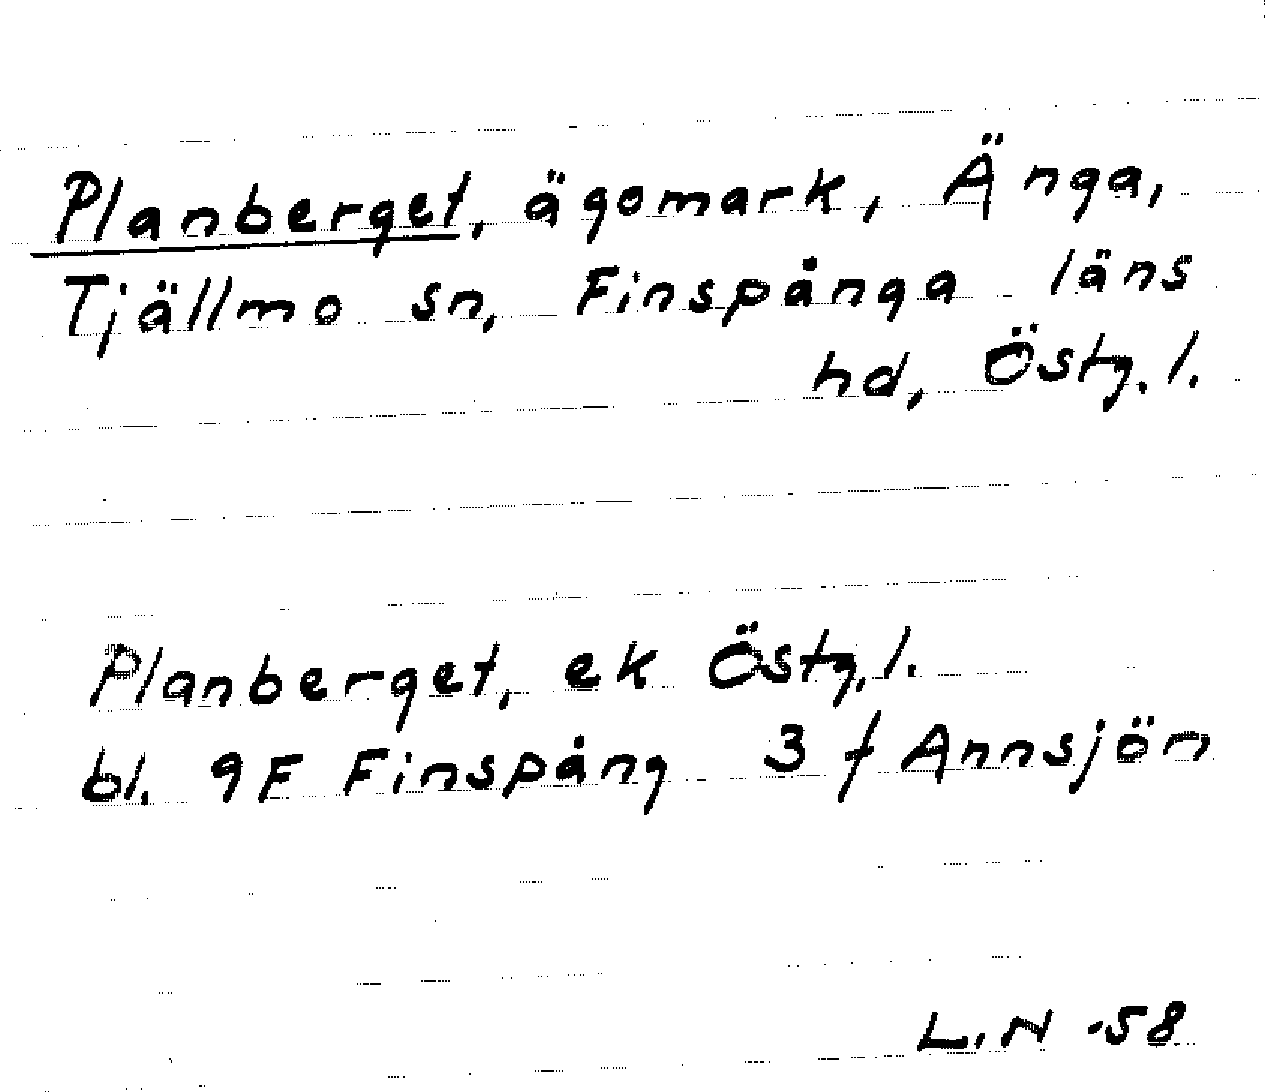 Planberget, ägomark, Änga,
Tjällmo sn, Finspånga läns
hd, Östg. l.
Planberget, ek Östg. l.
bl. 9F Finspång 3 f Annsjön
L.N -58